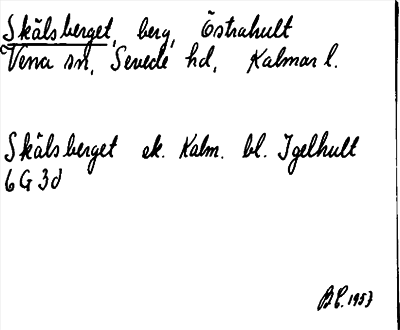 Skälsberget, berg, Östrahult
Vena sn, Sevede hd, Kalmar l.
Skälsberget ek. Kalm. bl. Igelhult
6G3d
1953